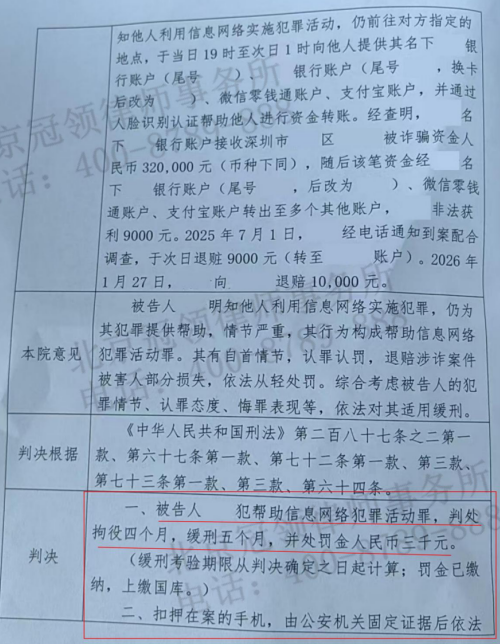 知他人利用信息网络实施犯罪活动，仍前往对方指定的
地点，于当日19时至次日1时向他人提供其名下 银
行账户（尾号 ）、 银行账户（尾号 ，换卡
后改为 ）、微信零钱通账户、支付宝账户，并通过
人脸识别认证帮助他人进行资金转账。经查明， 名
下 银行账户接收深圳市 区 被诈骗资金人
民币320,000元（币种下同），随后该笔资金经 名
下 银行账户（尾号 ，后改为 ）、微信零钱
通账户、支付宝账户转出至多个其他账户， 非法获
利9000元。2025年7月1日， 经电话通知到案配合
调查，于次日退赃9000元（转至 账户）。2026年
1月27日， 向 退赔10,000元。
本院意见
被告人 明知他人利用信息网络实施犯罪，仍为
其犯罪提供帮助，情节严重，其行为构成帮助信息网络
犯罪活动罪。其有自首情节，认罪认罚，退赔涉诈案件
被害人部分损失，依法从轻处罚。综合考虑被告人的犯
罪情节、认罪态度、悔罪表现等，依法对其适用缓刑。
判决根据
《中华人民共和国刑法》第二百八十七条之二第一
款、第六十七条第一款、第七十二条第一款、第三款、
第七十三条第一款、第三款、第六十四条。
判决
一、被告人 犯帮助信息网络犯罪活动罪，判处
拘役四个月，缓刑五个月，并处罚金人民币三千元。
（缓刑考验期限从判决确定之日起计算；罚金已缴
纳，上缴国库。）
二、扣押在案的手机，由公安机关固定证据后依法
北京冠领律师事务所
电话：400-8789-888